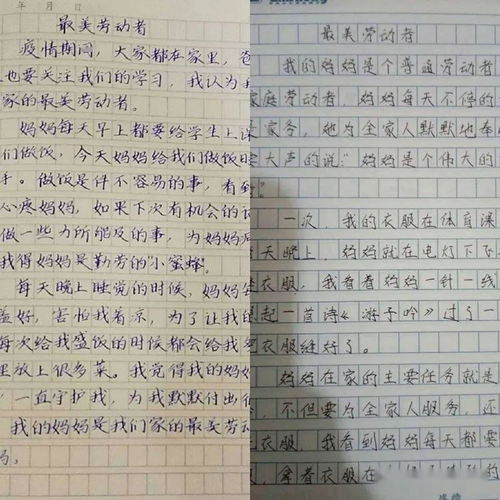 年 月 日
最美劳动者
疫情期间，大家都在家里，爸
也要关注我们的学习，我认为我
家的最美劳动者。
妈妈每天早上都要给学生上课
们做饭，今天妈妈给我们做饭时
手。做饭是件不容易的事，看到
心疼妈妈，如果下次有机会的话
做一些力所能及的事，为妈妈
我得妈妈是勤劳的"小蜜蜂"。
每天晚上睡觉的时候，妈妈
盖好，害怕我着凉，为了让我
每次给我盛饭的时候都会给我
里放上很多菜。我觉得我的妈妈
，一直守护我，为我默默付出
我的妈妈是我们家的最美劳动
最美劳动者
我的妈妈是个普通劳动者
家庭劳动者，妈妈每天不停的
家务，她为全家人默默地奉
大声的说："妈妈是个伟大的
一次，我的衣服在体育课
天晚上，妈妈就在电灯下飞
衣服，我看着妈妈一针一线
起一首诗《游子吟》过了一
衣服缝好了。
妈妈在家的主要任务就是
，不但要为全家人服务，还
衣服，我看到妈妈每天都要
，拿着衣服在